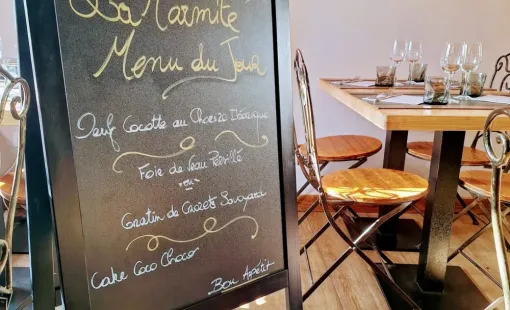 La Marmite
Menu Du Jour
Oeuf Cocotte au Chorizo Ibérique
Foie de Veau Persillé
ou
Gratin de Crozets Savoyard
Cake Coco Choco
Bon Appétit